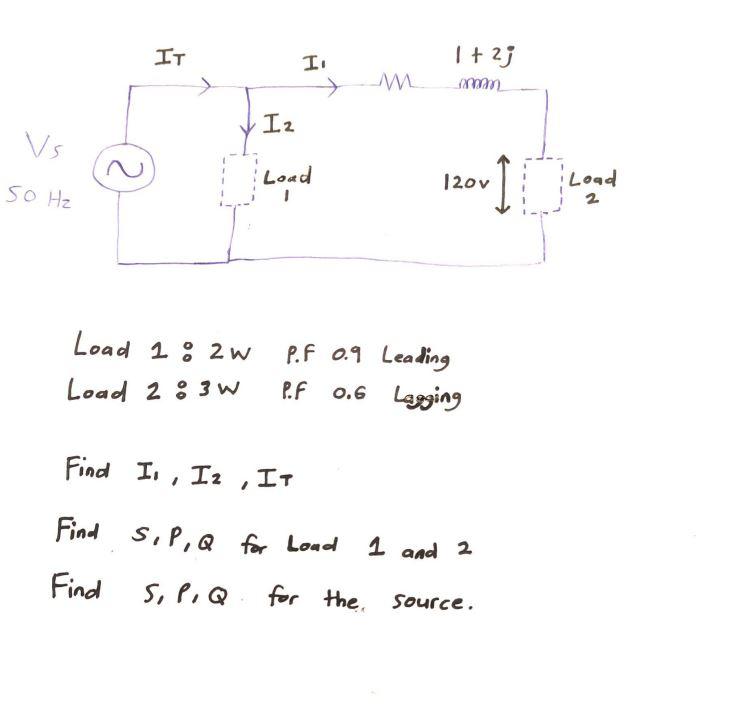 IT
I1
1 + 2j
I2
Vs
50 Hz
Load
1
120v
Load
2
Load 1 : 2W P.F 0.9 Leading
Load 2 : 3W P.F 0.6 Lagging
Find I1, I2, IT
Find S, P, Q for Load 1 and 2
Find S, P, Q for the source.